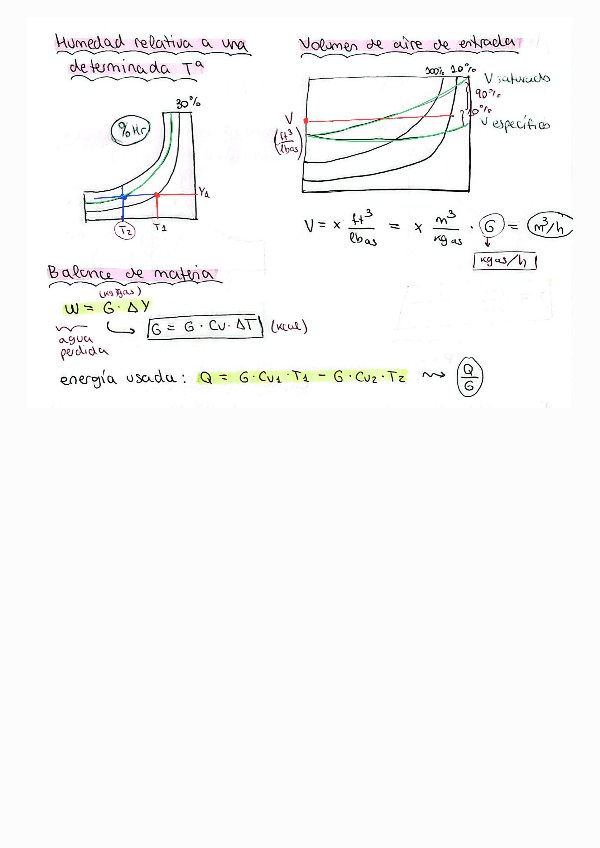 Humedad relativa a una
determinada Tª
30%
%Hr
Y1
T2 T1
Volumen de aire de entrada
100% 10%
V saturado
90%
10%
V específico
V
(ft³/lbas)
V = x ft³/lbas = x m³/kgas · G = m³/h
kgas/h
Balance de materia
(kgas)
W = G · ΔY
agua
perdida
G = G · Cv · ΔT (kcal)
energía usada: Q = G·Cv1·T1 - G·Cv2·T2 ⇝ Q/G